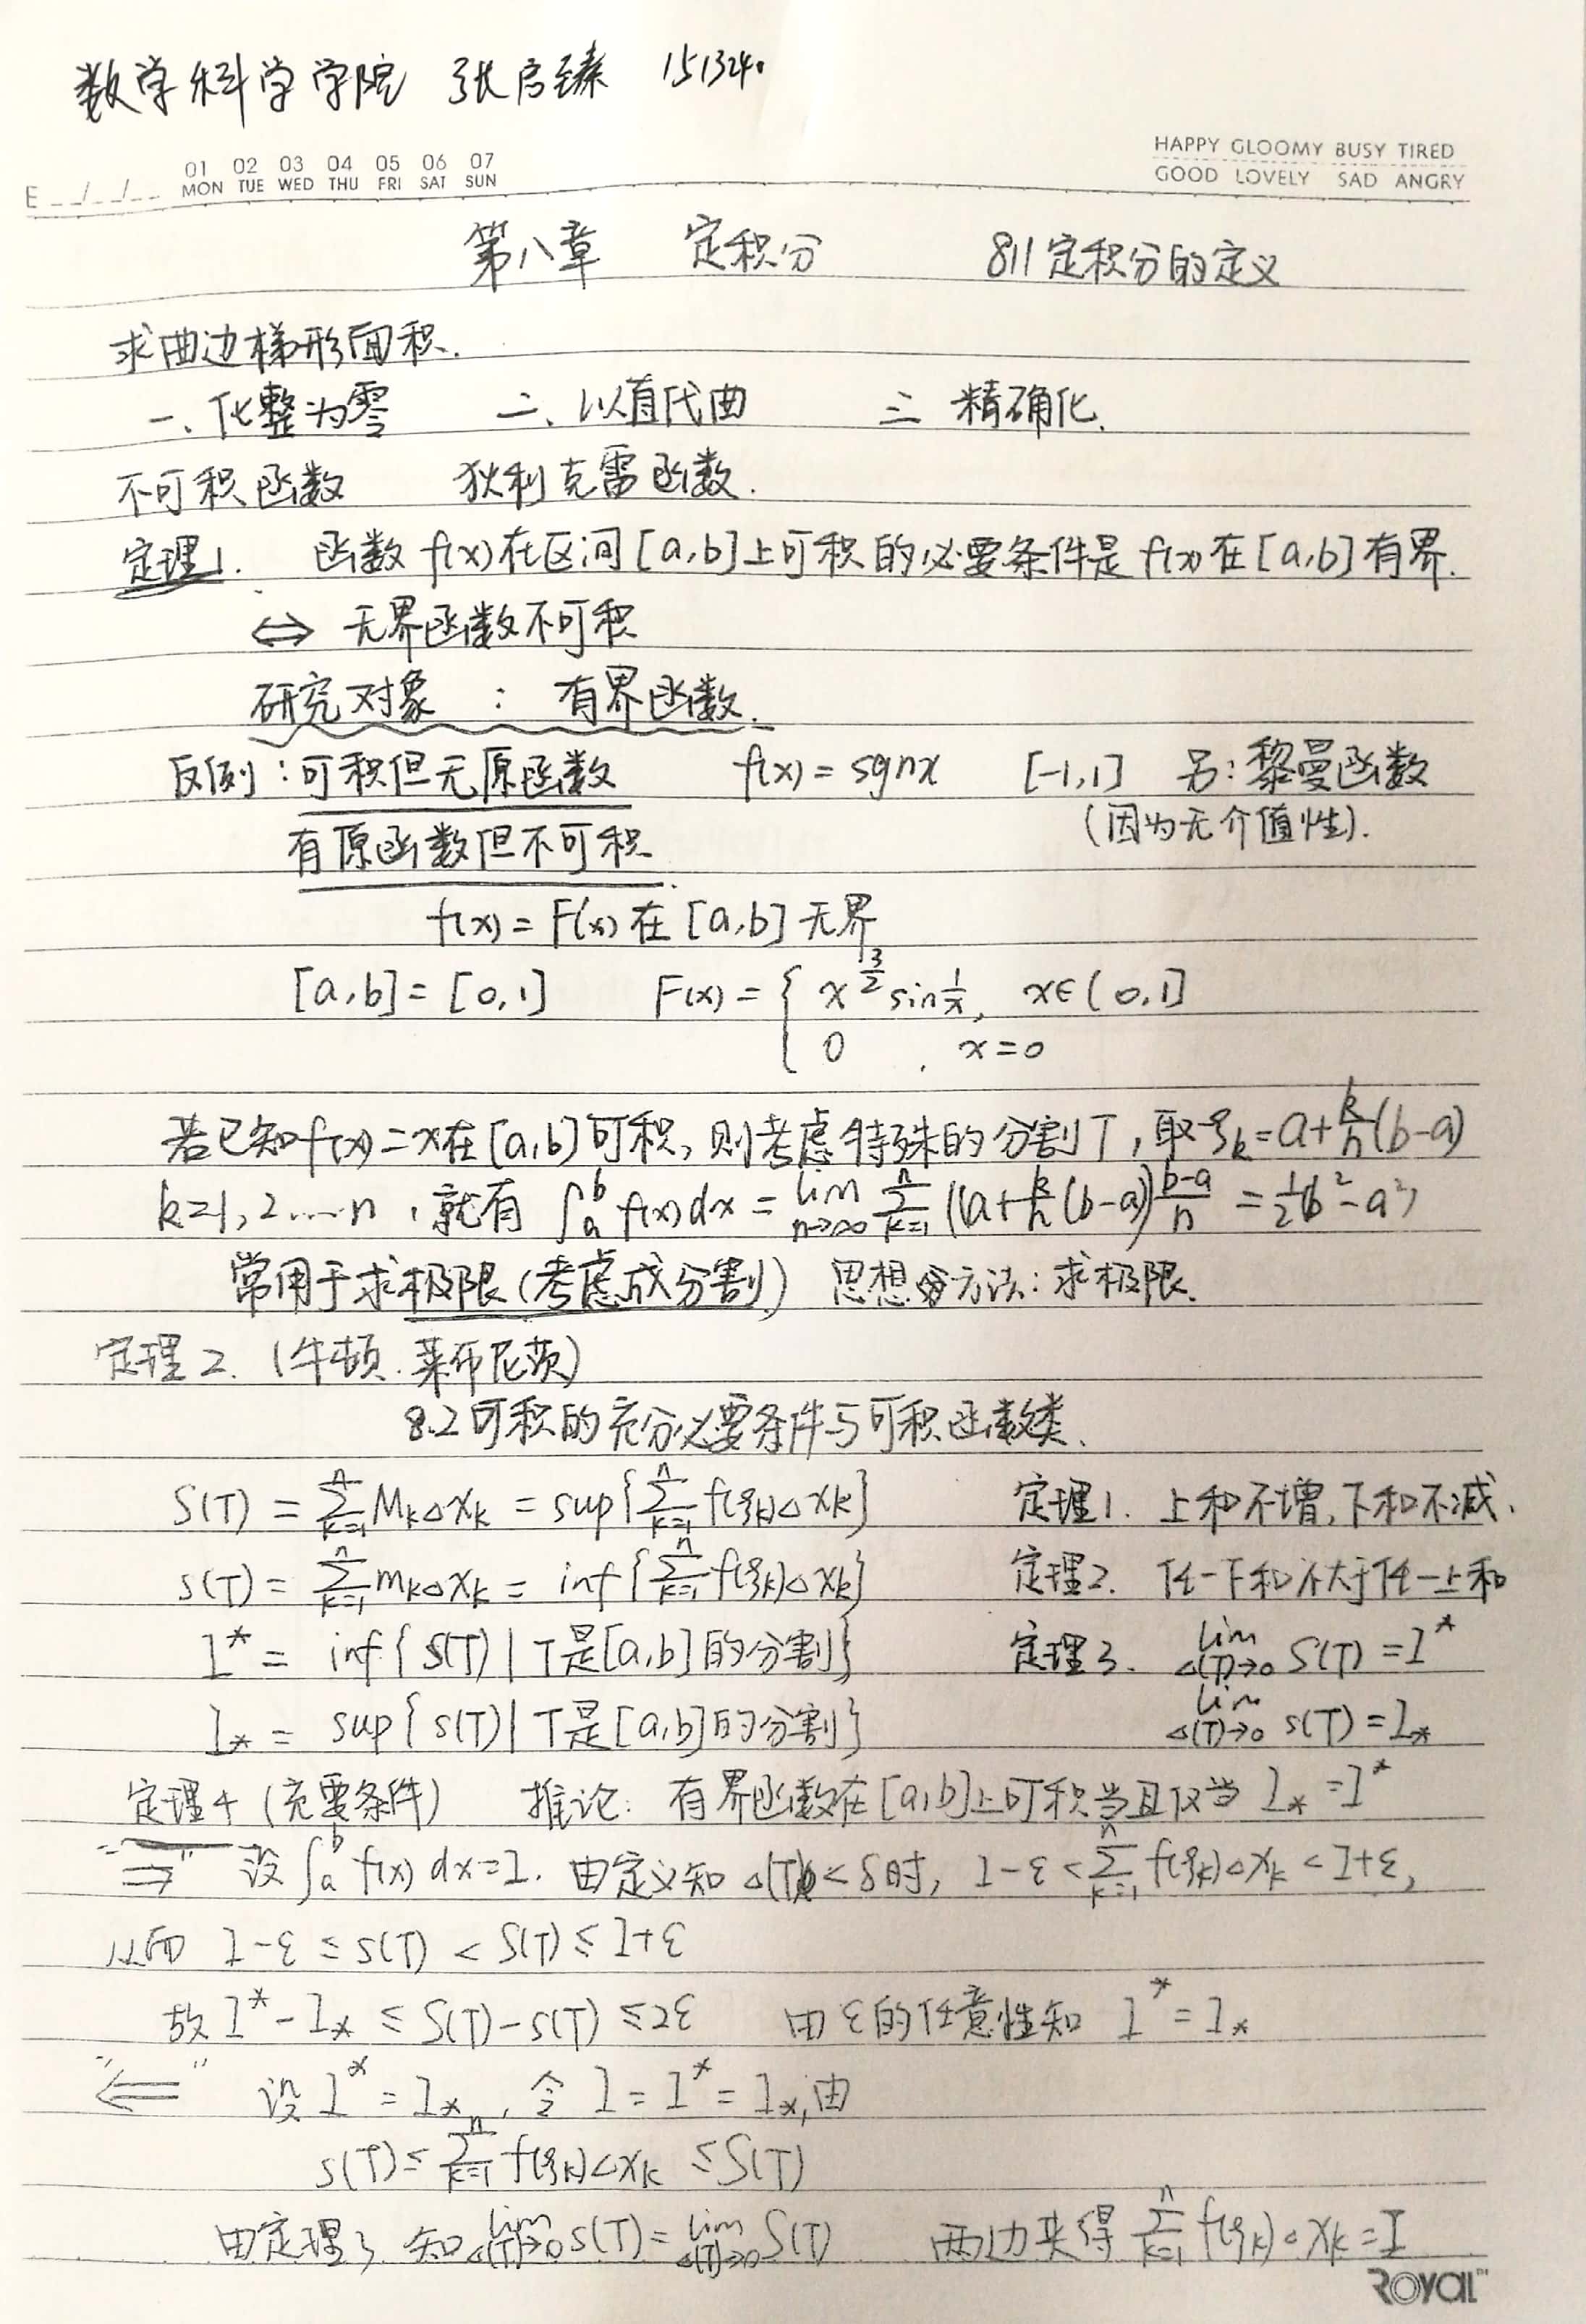 数学科学学院 张启臻 151340
01 02 03 04 05 06 07
MON TUE WED THU FRI SAT SUN
HAPPY GLOOMY BUSY TIRED
GOOD LOVELY SAD ANGRY
第八章 定积分 811定积分的定义
求曲边梯形面积.
一、化整为零 二、以直代曲 三 精确化.
不可积函数 狄利克雷函数.
定理1. 函数 f(x)在区间[a,b]上可积的必要条件是 f(x)在[a,b]有界.
⇔ 无界函数不可积
研究对象 : 有界函数.
反例:可积但无原函数 f(x)=sgnx [-1,1] 另:黎曼函数
(因为无介值性).
有原函数但不可积.
f(x)=F'(x)在[a,b]无界
[a,b]=[0,1] F(x)={ x^{3/2} sin 1/x, x∈(0,1]
0 , x=0
若已知f(x)=x在[a,b]可积,则考虑特殊的分割T,取ξ_k=a+k/n(b-a)
k=1,2……n,就有 ∫_a^b f(x)dx=lim_{n→∞} ∑_{k=1}^n ((a+k/n(b-a)) (b-a)/n =1/2(b²-a²)
常用于求极限(考虑成分割) 思想方法:求极限.
定理2.(牛顿.莱布尼茨)
8.2可积的充分必要条件与可积函数类.
S(T)=∑_{k=1}^n M_k△x_k=sup{∑_{k=1}^n f(ξ_k)△x_k} 定理1. 上和不增,下和不减.
s(T)=∑_{k=1}^n m_k△x_k=inf{∑_{k=1}^n f(ξ_k)△x_k} 定理2. 任一下和不大于任一上和
I^*= inf{S(T)|T是[a,b]的分割} 定理3. lim_{△(T)→0} S(T)=I^*
I_*= sup{s(T)|T是[a,b]的分割} lim_{△(T)→0} s(T)=I_*
定理4(充要条件) 推论: 有界函数在[a,b]上可积当且仅当 I_*=I^*
"⇒" 设∫_a^b f(x)dx=I. 由定义知 △(T)<δ时, I-ε<∑_{k=1}^n f(ξ_k)△x_k<I+ε,
从而 I-ε≤s(T)<S(T)≤I+ε
故 I^*-I_*≤S(T)-s(T)≤2ε 由ε的任意性知 I^*=I_*
"⇐" 设 I^*=I_*, 令 I=I^*=I_*,由
s(T)≤∑_{k=1}^n f(ξ_k)△x_k≤S(T)
由定理3 知 lim_{△(T)→0} s(T)=lim_{△(T)→0} S(T) 两边夹得 ∑_{k=1}^n f(ξ_k)△x_k=I
ROYAL